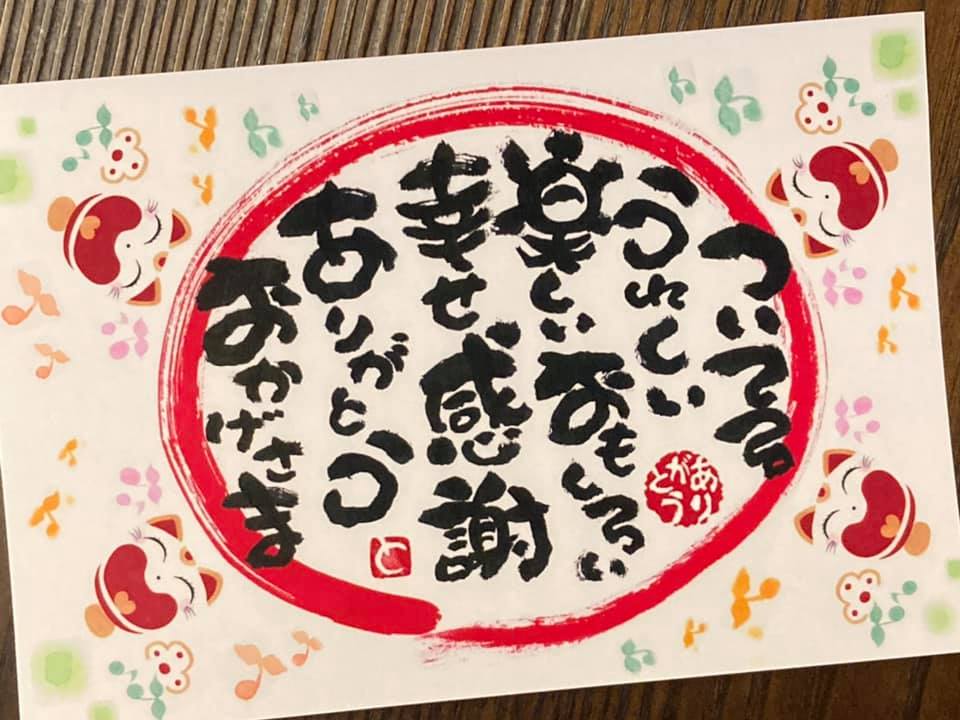 ついてる
うれしい
楽しい おもしろい
幸せ 感謝
ありがとう
おかげさま
ありがとう